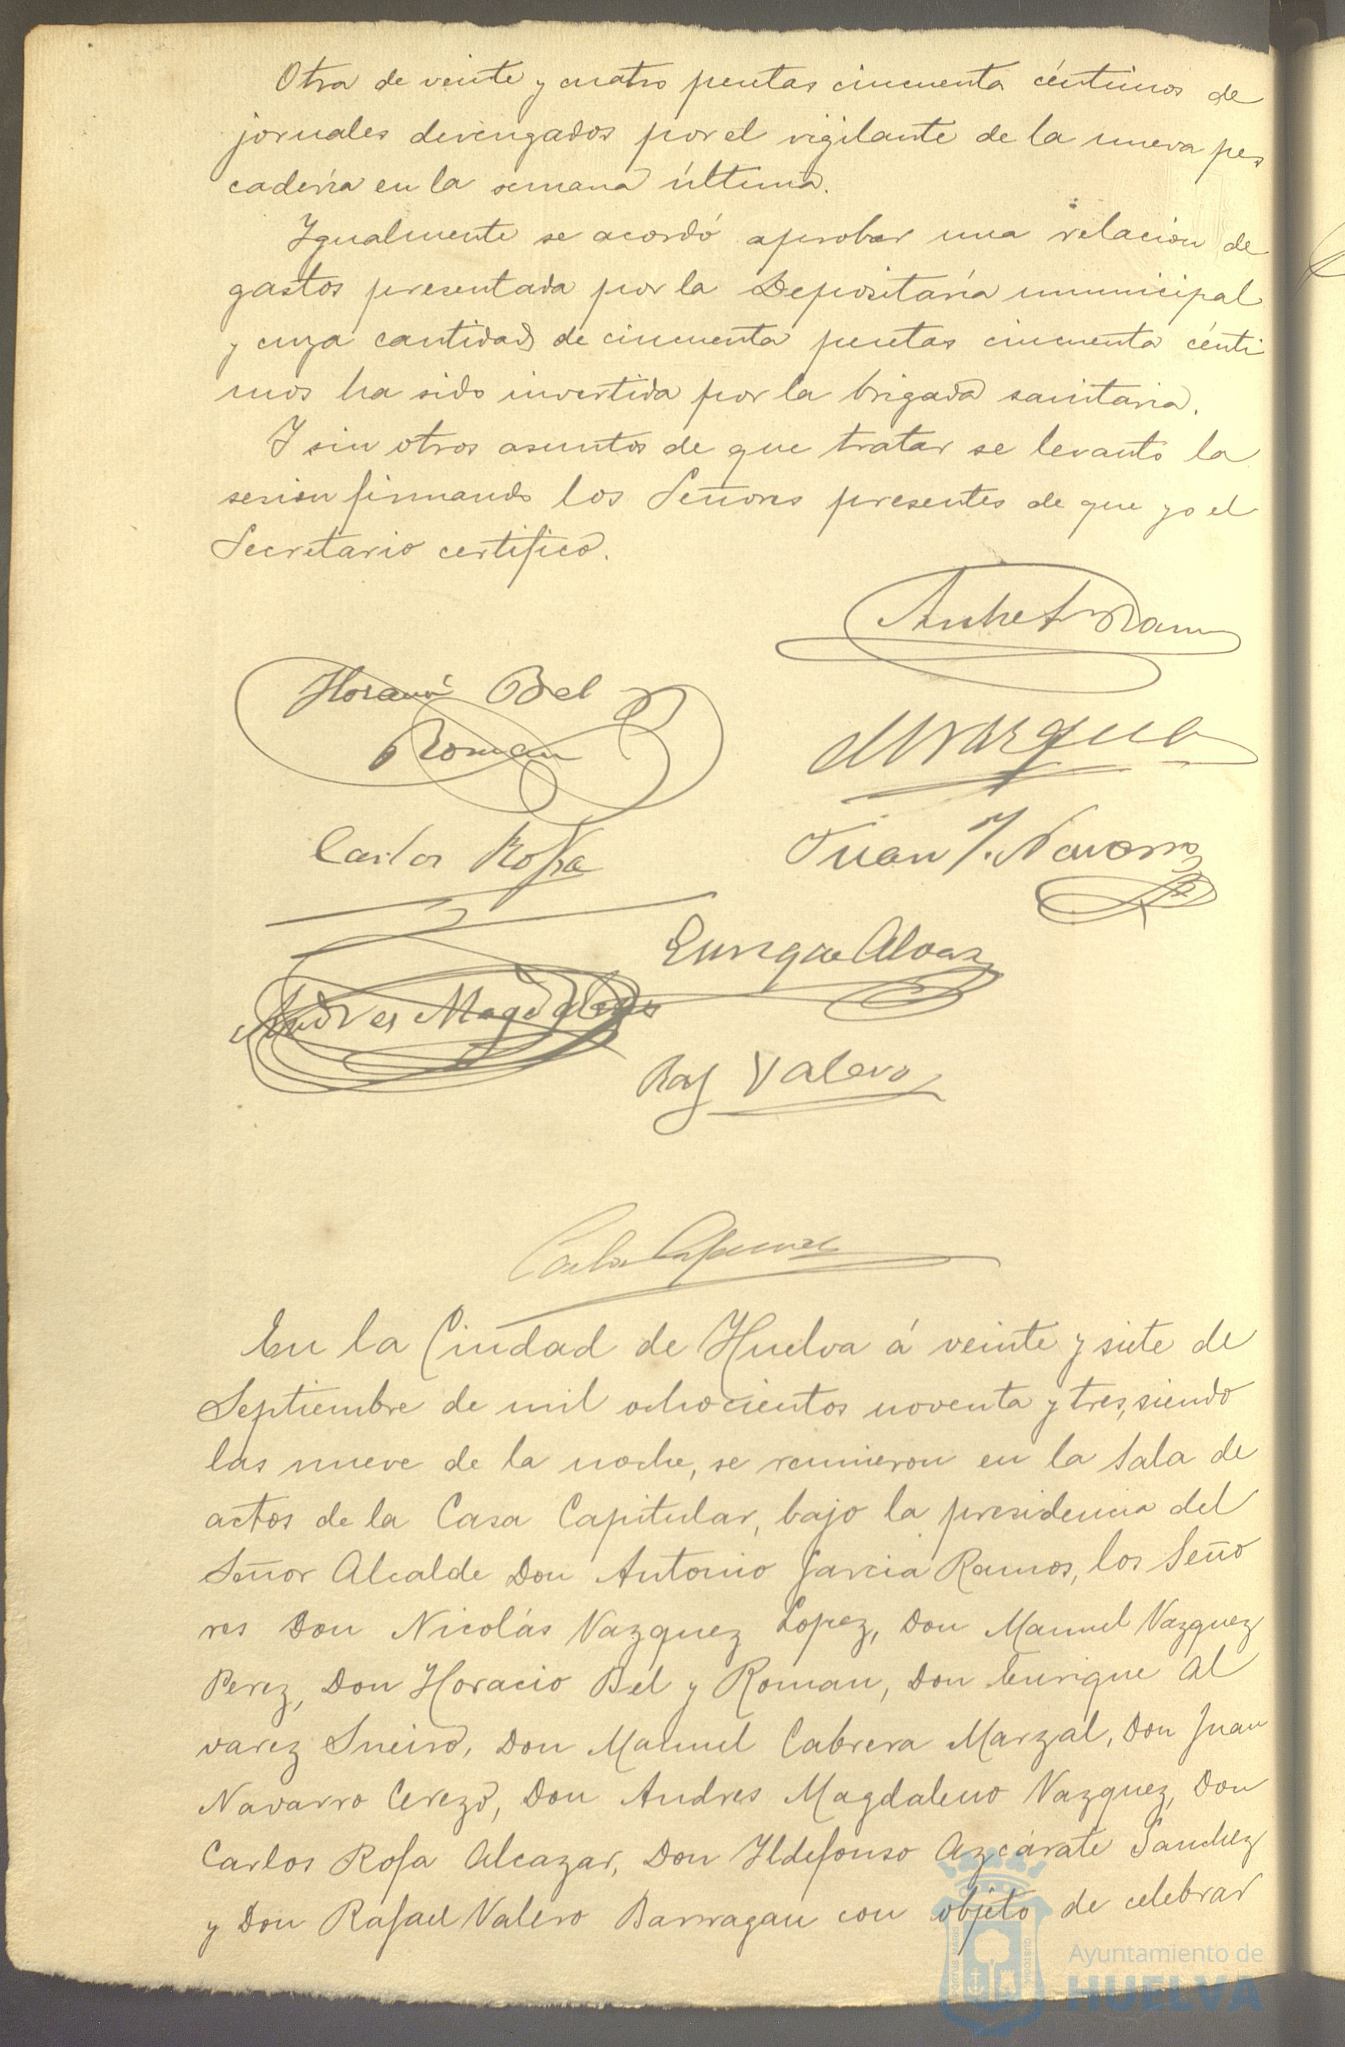 Otra de veinte y cuatro pesetas cincuenta céntimos de
jornales devengados por el vigilante de la nueva pes
cadería en la semana última.
Igualmente se acordó aprobar una relacion de
gastos presentada por la Depositaría municipal
y cuya cantidad de cincuenta pesetas cincuenta cénti
mos ha sido invertida por la brigada sanitaria.
Y sin otros asuntos de que tratar se levantó la
sesion firmando los Señores presentes de que yo el
Secretario certifico.
Horacio Bel
Roman
Carlos Rofa
Juan Navarro
Enrique Alvarez
Andres Magdaleno
Raf Valero
En la Ciudad de Huelva á veinte y siete de
Septiembre de mil ochocientos noventa y tres, siendo
las nueve de la noche, se reunieron en la Sala de
actos de la Casa Capitular, bajo la presidencia del
Señor Alcalde Don Antonio Garcia Ramos, los Seño
res Don Nicolás Vazquez Lopez, Don Manuel Vazquez
Perez, Don Horacio Bel y Roman, Don Enrique Al
varez Sneiro, Don Manuel Cabrera Marzal, Don Juan
Navarro Cerezo, Don Andres Magdaleno Vazquez, Don
Carlos Rofa Alcazar, Don Ildefonso Azcárate Sanchez
y Don Rafael Valero Barragan con objeto de celebrar
Ayuntamiento de
HUELVA